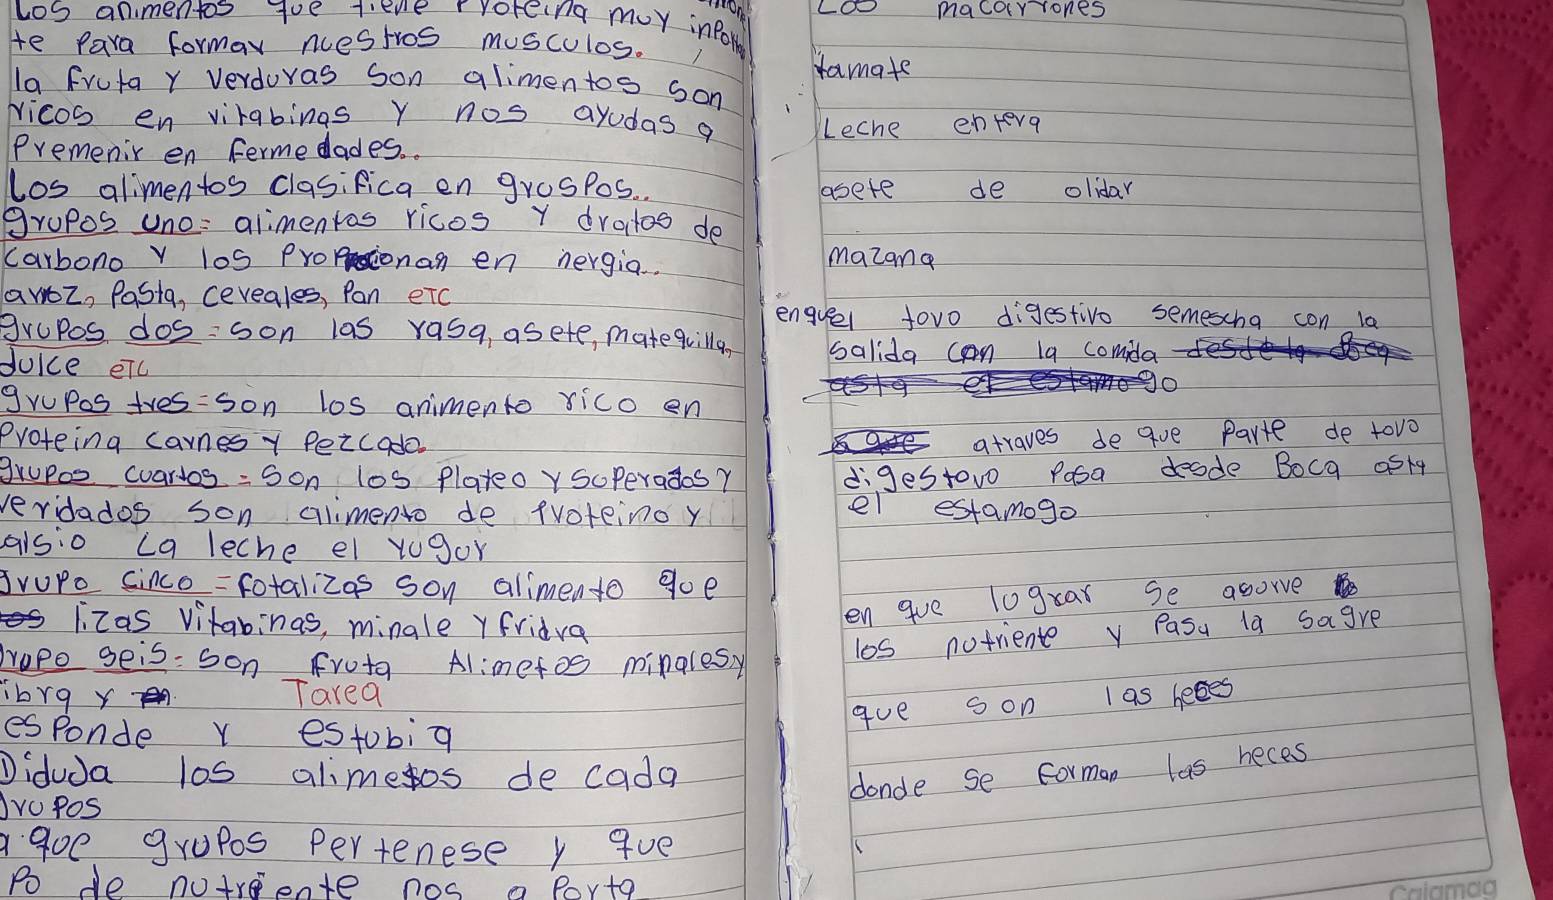 Los animentos que tiene Proteina muy inporta
te Para formar nuestros musculos.
la fruta y verduras son alimentos son
ricos en vitabinas y nos ayudas a
Premenir en fermedades..
Los alimentos clasifica en grusPos..
grupos uno= alimentos ricos y dratos de
carbono y los Proporcionan en nergia..
arroz, Pasta, cereales, Pan etc
grupos dos = son las rasa, asete, matequilla,
dulce etc
grupos tres = son los animento rico en
Proteina carnes y Pezcado.
grupos cuartos = son los Plateo y suPerados y
veridados son alimento de Proteino y
alsio La leche el yugur
grupo cinco = fotalizas son alimento que
lizas vitabinas, minale y fridra
grupo seis = son fruta Alimetos minales y
ibra y
Tarea
esponde y estubia
Diduja los alimetos de cada
grupos
a que grupos Pertenese y que
Po de nutriente nos a Porta
Los macarrones
tamate
Leche entera
asete de olidar
mazana
enquel tovo digestivo semescha con la
salida con la comida
atraves de que Parte de tovo
digestovo Pasa desde Boca asta
el estamogo
en que lograr se asorve
los nutriente y Pasa la sagre
que son las heces
donde se forman las heces
Calamag